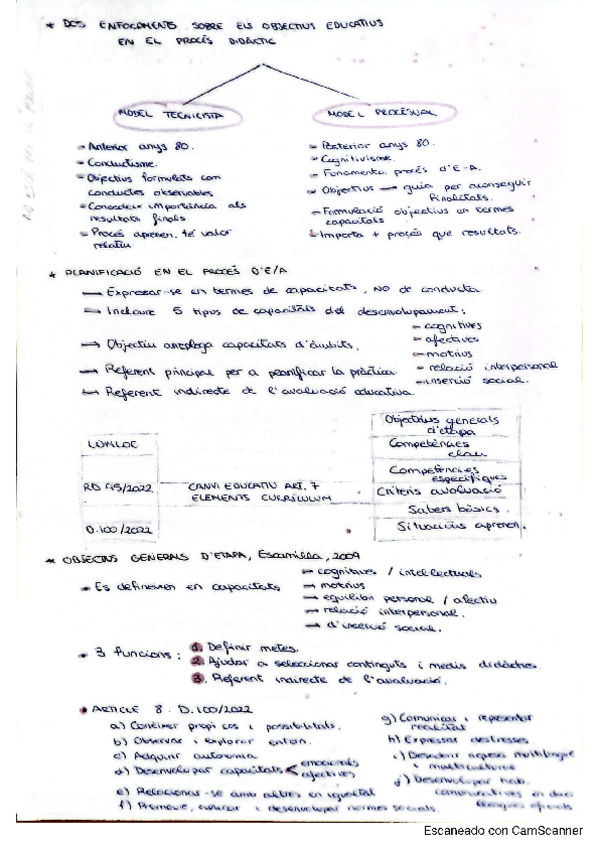 * DOS ENFOCAMENTS SOBRE ELS OBJECTIUS EDUCATIUS
EN EL PROCÉS DIDÀCTIC
MODEL TECNICISTA
- Anterior anys 80.
- Conductisme.
- Objectius formulats com
conductes observables
importància als
resultats finals
- Procés aprenen. té valor
relatiu
MODEL PROCESUAL
- Posterior anys 80.
- Cognitivisme.
- Fonamenta procés d'E-A.
- Objectius → guia per aconseguir
finalitats.
- Formulació objectius en termes
capacitats
- Importa + procés que resultats.
* PLANIFICACIÓ EN EL PROCÉS D'E/A
→ Expressar-se en termes de capacitats, NO de conducta
→ Incloure 5 tipus de capacitats del desenvolupament:
- cognitives
- afectives
- motrius
- relació interpersonal
- inserció social.
→ Objectiu arreplega capacitats d'àmbits.
→ Referent principal per a planificar la pràctica.
→ Referent indirecte de l'avaluació educativa.
LOMLOE
RD 95/2022
D.100/2022
CANVI EDUCATIU ART. 7
ELEMENTS CURRÍCULUM
Objectius generals
d'etapa
Competències
clau
Competències
específiques
Criteris avaluació
Sabers bàsics
Situacions aprenen.
* OBJECTIUS GENERALS D'ETAPA, Escamilla, 2009
• Es defineixen en capacitats
- cognitives / intel·lectuals
- motrius
→ equilibri personal / afectiu
→ relació interpersonal.
→ d'inserció social.
• 3 funcions:
1. Definir metes.
2. Ajudar a seleccionar continguts i medis didàctics.
3. Referent indirecte de l'avaluació.
• ARTICLE 8. D.100/2022
a) Conèixer propi cos i possibilitats.
b) Observar i explorar entorn.
c) Adquirir autonomia
d) Desenvolupar capacitats < emocionals
afectives
e) Relacionar-se amb altres en igualtat
f) Promoure, i desenvolupar normes socials.
g) Comunicar i representar
realitat
h) Expressar destresses.
i) Descobrir riquesa multilingüe
i multicultural
j) Desenvolupar hab.
comunicatives en dues
llengües oficials
Escaneado con CamScanner